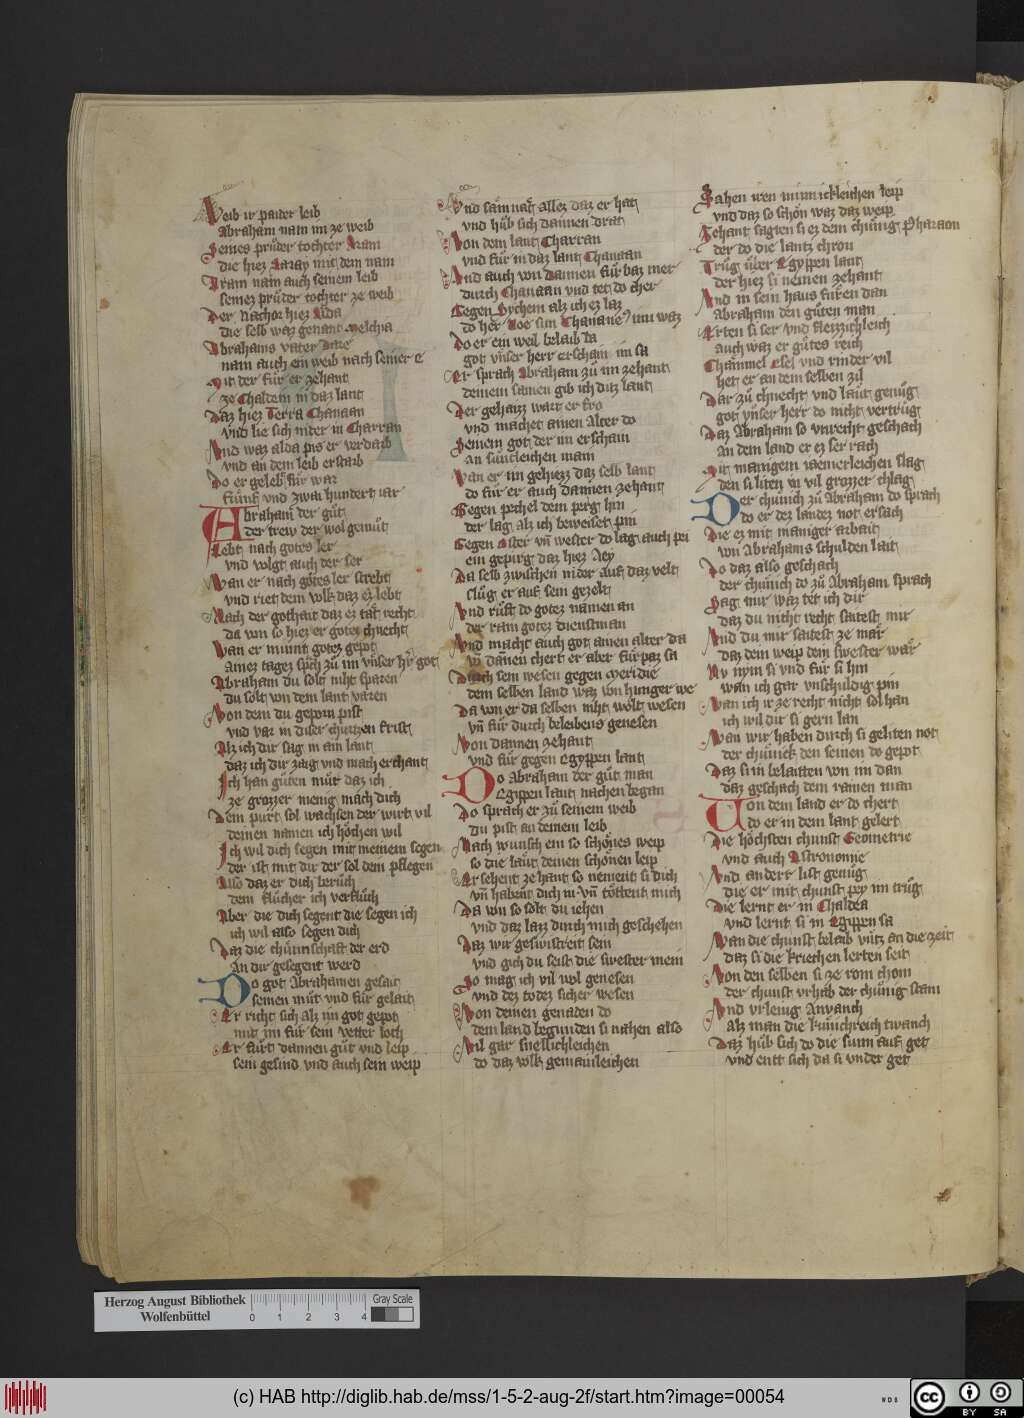 Leib ir paider leib
Abraham nam im ze weib
Seines průder tochter Aram
die hiez Saray mit dem nam
Aram nam auch seinem leib
seinez průder tochter ze weib
Der Nachor hiez
die selb waz genant Melchia
Abrahams vater
nam auch ein weib nach seiner e
Mit der fůr er zehant
ze Chaldein in daz lant
Daz hiez Terra Chanaan
vnd lie sich nider in Charran
Vnd waz alda pis er verdarb
vnd an dem leib erstarb
Do er gelebt fůr war
fůnff vnd zwai hundert iar
Abraham der gůt
der trew der wol gemůt
Lebt nach gotes ler
vnd volgt auch der ser
Wan er nach gotes ler strebt
vnd riet dem volk daz ez lebt
Nach der gothait daz ez tåt recht
da von so hiez er gotes chnecht
Wan er minnt gotez gepot
Ainez tagez sprach zů im vnser herr got
Abraham du solt niht sparen
du solt von dem lant varen
Von dem du geporn pist
vnd var in diser churtzen frist
Alz ich dir sag in ain lant
daz ich dir zaig vnd mach erchant
Ich han gůten můt daz ich
ze grozzer menig mach dich
Dein purt sol wachsen der wirt vil
deinen namen ich hochen wil
Ich wil dich segen mit meinem segen
der ist mit dir der sol dein pflegen
Also daz er dich berůch
dein flůcher ich verflůch
Aber die dich segent die segen ich
ich wil also segen dich
Daz die chůnnschaft der erd
An dir gesegent werd
Do got Abrahamen gesait
seinen můt vnd fůr gelait
Er richt sich alz im got gepot
mit im fůr sein vetter loth
Er fůrt dannen gůt vnd leip
sein gesind vnd auch sein weip
Vnd samnat allez daz er hat
vnd hůb sich dannen drat
Von dem lant Charran
vnd fůr in daz lant Chanaan
Vnd auch von dannen fůr baz mer
durch Chanaan vnd tet do cher
Gegen Sychem alz ich ez laz
do her Noe sun Chananeus inn waz
Do er ein weil belaib da
got vnser herr erschain im sa
Er sprach Abraham zů im zehant
deinem samen gib ich ditz lant
Der gehaizz wart er fro
vnd machet ainen Alter do
Seinem got der im erschain
an sůntleichen main
Wan er im gehiezz daz selb lant
do fůr er auch dannen zehant
Gegen pechel dem perg hin
der lag alz ich beweiset pin
Gegen Oster vnd wester do lag auch pei
ein gepirg daz hiez Aey
Da selb zwischen nider auf daz velt
slůg er auf sein gezelt
Vnd růft do gotez namen an
der rain gotez dienstman
Vnd macht auch got ainen alter da
von dannen chert er aber fůrpaz sa
Durch sein wesen gegen Meridie
dem selben land waz von hunger we
Da von er da selben niht wolt wesen
vnd fůr durch beleibens genesen
Von dannen zehant
vnd fůr gegen Egyppen lant
Do Abraham der gůt man
Egippen lant nachen began
Do sprach er zů seinem weib
du pist an deinem leib
Nach wunsch ein so schönes weip
so die läut deinen schönen leip
Ersehent zehant so nement si dich
vnd habent dich in vnd töttent mich
Da von so solt du iehen
vnd daz lazz durch mich geschehen
Daz wir geswistreit sein
vnd gich du seist die swester mein
So mag ich vil wol genesen
vnd dez todez sicher wesen
Von deinen genaden do
dem land begunden si nahen also
Vil gar snellichleichen
do daz volk gemainleichen
Sahen iren minnickleichen leip
vnd daz so schön waz daz weip
Zehant sagten si ez dem chůnig Pharaon
der do die lantz chron
Trůg ůber Egyppen lant
der hiez si nemen zehant
Vnd in sein haus fůren dan
Abraham den gůten man
Erten si ser vnd fleizzichleich
auch waz er gůtes reich
Chammel Esel vnd rinder vil
het er an dem selben zil
Dar zů chnecht vnd laut genůg
got vnser herr do nicht vertrůg
Daz Abraham so vnrecht geschach
an dem land er ez ser rach
Mit manigem iaemerleichen slag
den si liten vnd vil grozzer chlag
Der chůnich zů Abraham do sprach
do er dez landez not ersach
Die ez mit maniger arbait
von Abrahams schulden lait
Do daz also geschach
der chůnich do zů Abraham sprach
Sag mir waz tet ich dir
daz du nicht recht saitest mir
Vnd du mir saitest ze mär
daz dein weip dein swester wär
Nv nym si vnd fůr si hin
wan ich gar vnschuldig pin
Wan ich ir ze recht nicht sol han
ich wil dir si gern lan
Wan wir haben durch si geliten not
der chůnick den seinen do gepot
Daz si in belaitten von im dan
daz geschach dem rainen man
Von dem land er do chert
do er in dem lant gelert
Die höchsten chunst Geometrie
vnd auch Astronomie
Vnd anderr list genůg
die er mit chunst pey im trůg
Die lernt er in Chaldea
vnd lernt si in Egippen sa
Wan die chunst belaib vntz an die zeit
daz si die kriechen lerten seit
Von den selben si ze rom chom
der chunst vrhab der chůnig stam
Vnd vrleug Anvanch
alz man die kůnichreich twanch
Daz hůb sich do die sunn auf get
vnd entt sich da si vnder get
Herzog August Bibliothek
Wolfenbüttel
0 1 2 3 4
Gray Scale
(c) HAB http://diglib.hab.de/mss/1-5-2-aug-2f/start.htm?image=00054
WDB
cc BY SA